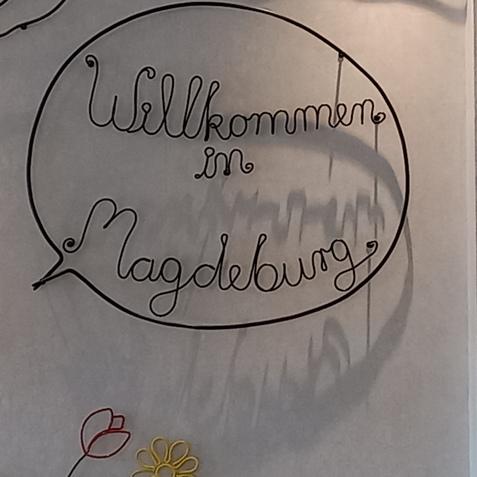 Willkommen
in
Magdeburg